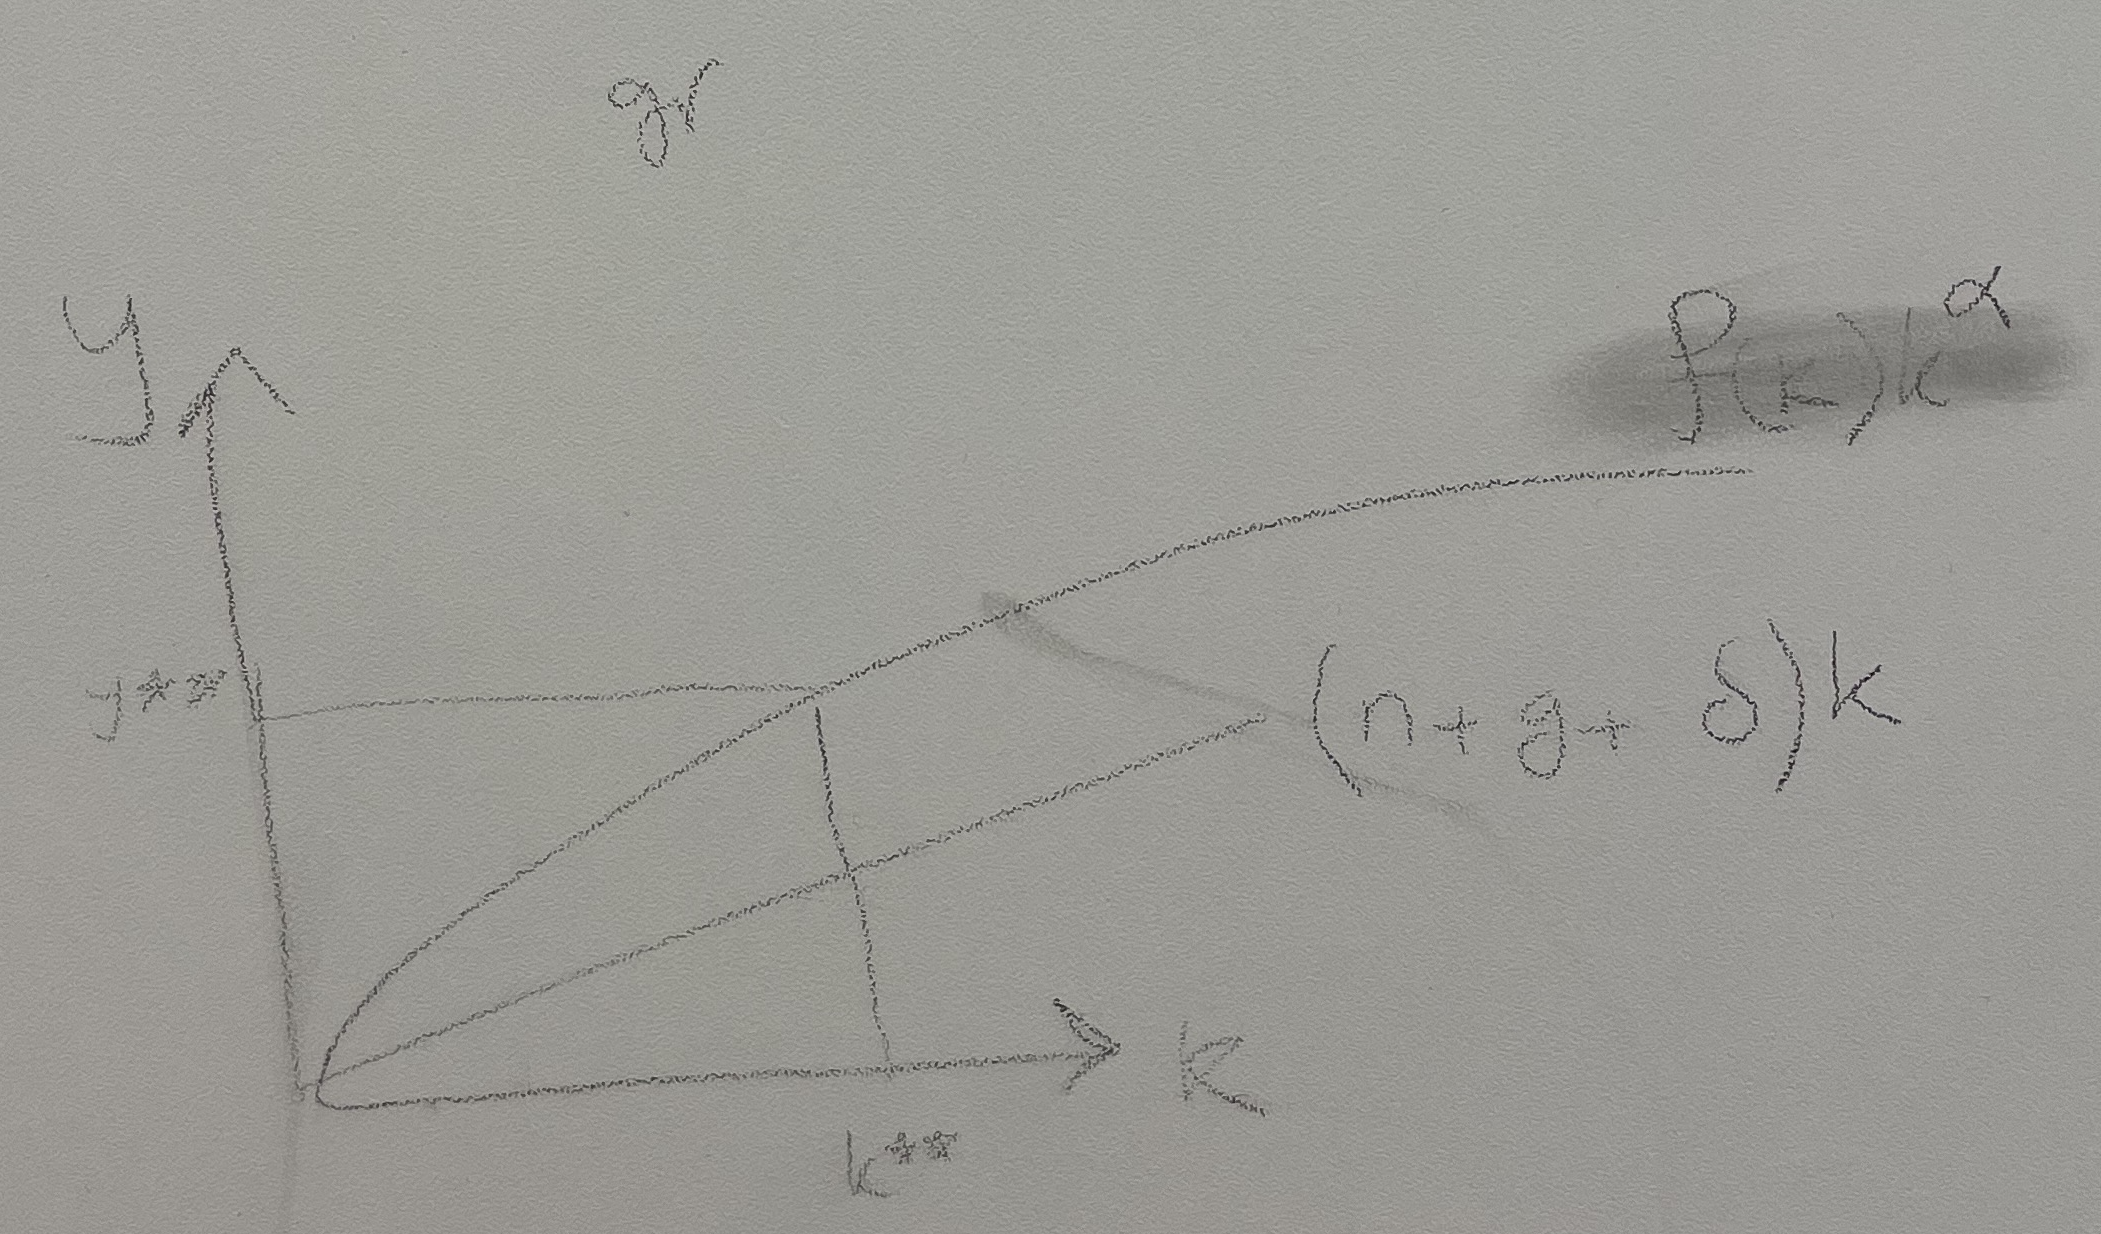 y
f(k)k^α
y**
(n+g+ δ)k
k
k**